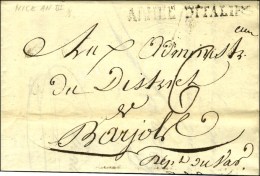 NICE AN II
ARMÉE D'ITALIE
Aux Administr
du District
de
Barjols
Dép.t du Var